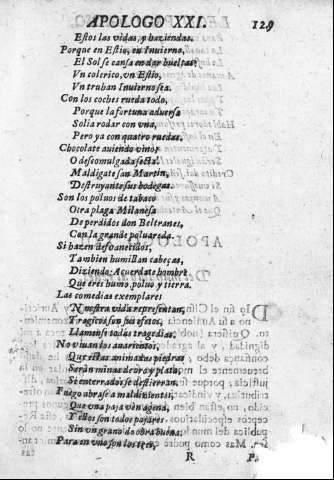 APOLOGO XXI. 129
Estos las vidas, y haziendas.
Porque en Estio, en Inuierno,
El Sol se cansa en dar bueltas,
Vn colerico, vn Estio,
Vn truhan Inuierno sea.
Con los coches rueda todo,
Porque la fortuna aduersa
Solia rodar con vna,
Pero ya con quatro ruedas.
Chocolate auiendo vino?
O descomulgada secta!
Maldigate san Martin,
Destruyante sus bodegas.
Son los poluos de tabaco
Otra plaga Milanesa
De perdidos don Beltranes,
Con la grande poluareda.
Si hazen desuanecidos,
Tambien humillan cabeças,
Diziendo: Acuerdate hombre
Que eres humo, poluo y tierra.
Las comedias exemplares
Nuestra vida representan,
Tragicos son sus efetos,
Llamense todas tragedias.
No viuan los auarientos,
Que estas animadas piedras
Serán minas de oro y plata,
Si enterrados se destierran.
Fuego abrase a maldizientes,
Que vna paja ven agena,
Y ellos son todos pajares
Sin vn grano de obra buena.
Para en vno son los
R Pa